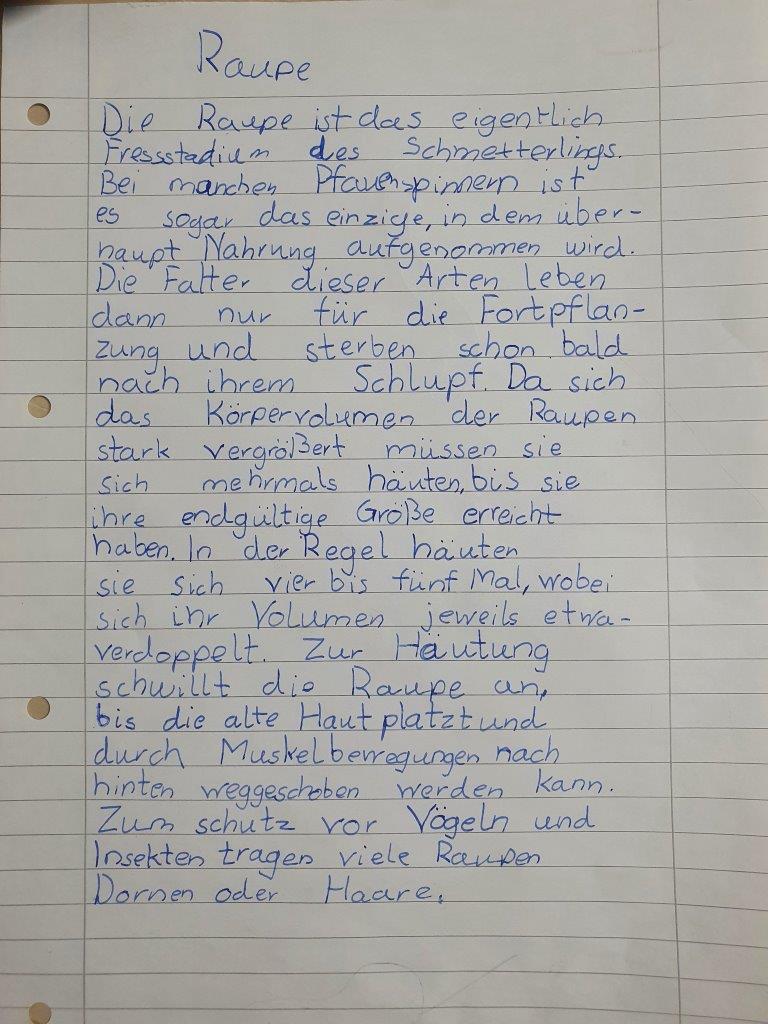 Raupe
Die Raupe ist das eigentlich
Fressstadium des Schmetterlings.
Bei manchen Pfauenspinnern ist
es sogar das einzige, in dem über-
haupt Nahrung aufgenommen wird.
Die Falter dieser Arten leben
dann nur für die Fortpflan-
zung und sterben schon bald
nach ihrem Schlupf. Da sich
das Körpervolumen der Raupen
stark vergrößert müssen sie
sich mehrmals häuten, bis sie
ihre endgültige Größe erreicht
haben. In der Regel häuten
sie sich vier bis fünf Mal, wobei
sich ihr Volumen jeweils etwa-
verdoppelt. Zur Häutung
schwillt die Raupe an,
bis die alte Haut platzt und
durch Muskelbewegungen nach
hinten weggeschoben werden kann.
Zum schutz vor Vögeln und
Insekten tragen viele Raupen
Dornen oder Haare.